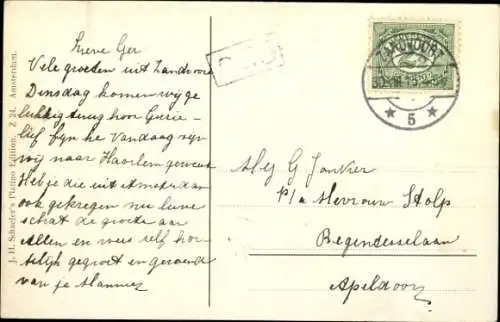 Lieve Ger
Vele groeten uit Zandvoort
Dinsdag komen wij ge
lukkig terug hoor
lief fijn he Vandaag zijn
wij naar Haarlem geweest
Heb je die uit Amsterdam
ook gekregen nu lieve
schat de groete aan
Allen en wees zelf har
telijk gegroet en gezoend
van je Mannie
J. H. Schaefer's Platino Edition. Z 24. Amsterdam.
ZANDVOORT
5
Mej G Jonker
p/a Mevrouw Stolp
Regentesselaan
Apeldoorn